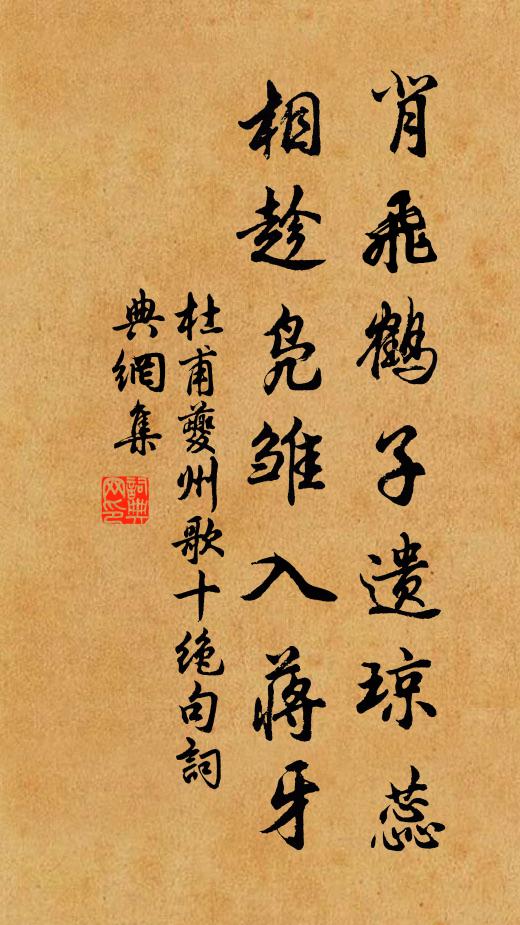 肖飛鶴子遺瓊蕊
相趁鳧雛入蔣牙
杜甫夔州歌十絕句詞
典網集
詞典
网印